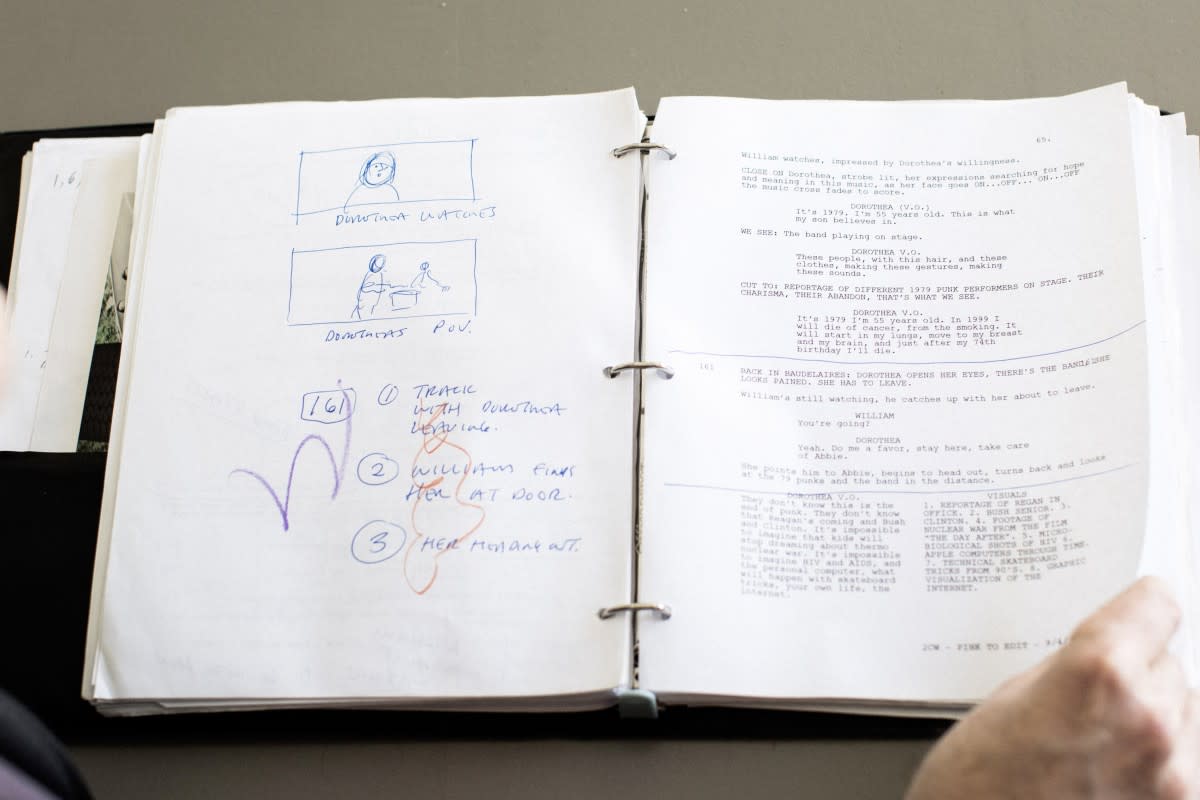 1, 6,
1,
DOROTHEA WATCHES
DOROTHEAS P.O.V.
161
1 TRACK
WITH DOROTHEA
LEAVING.
2 WILLIAM FINDS
HER AT DOOR.
3 HER HEADING OUT.
65.
William watches, impressed by Dorothea's willingness.
CLOSE ON Dorothea, strobe lit, her expressions searching for hope
and meaning in this music, as her face goes ON...OFF... ON...OFF
the music cross fades to score.
DOROTHEA (V.O.)
It's 1979. I'm 55 years old. This is what
my son believes in.
WE SEE: The band playing on stage.
DOROTHEA V.O.
These people, with this hair, and these
clothes, making these gestures, making
these sounds.
CUT TO: REPORTAGE OF DIFFERENT 1979 PUNK PERFORMERS ON STAGE. THEIR
CHARISMA, THEIR ABANDON, THAT'S WHAT WE SEE.
DOROTHEA V.O.
It's 1979 I'm 55 years old. In 1999 I
will die of cancer, from the smoking. It
will start in my lungs, move to my breast
and my brain, and just after my 74th
birthday I'll die.
161 BACK IN BAUDELAIRES: DOROTHEA OPENS HER EYES, THERE'S THE BAND, SHE
LOOKS PAINED. SHE HAS TO LEAVE.
William's still watching, he catches up with her about to leave.
WILLIAM
You're going?
DOROTHEA
Yeah. Do me a favor, stay here, take care
of Abbie.
She points him to Abbie, begins to head out, turns back and looks
at the 79 punks and the band in the distance.
DOROTHEA V.O.
They don't know this is the
end of punk. They don't know
that Reagan's coming and Bush
and Clinton. It's impossible
to imagine that kids will
stop dreaming about thermo
nuclear war. It's impossible
to imagine HIV and AIDS, and
the personal computer, what
will happen with skateboard
tricks, your own life, the
internet.
VISUALS
1. REPORTAGE OF REGAN IN
OFFICE. 2. BUSH SENIOR. 3.
CLINTON. 4. FOOTAGE OF
NUCLEAR WAR FROM THE FILM
"THE DAY AFTER". 5. MICRO-
BIOLOGICAL SHOTS OF HIV 6.
APPLE COMPUTERS THROUGH TIME.
7. TECHNICAL SKATEBOARD
TRICKS FROM 90'S. 8. GRAPHIC
VISUALIZATION OF THE
INTERNET.
2CW - PINK TO EDIT - 9/4/